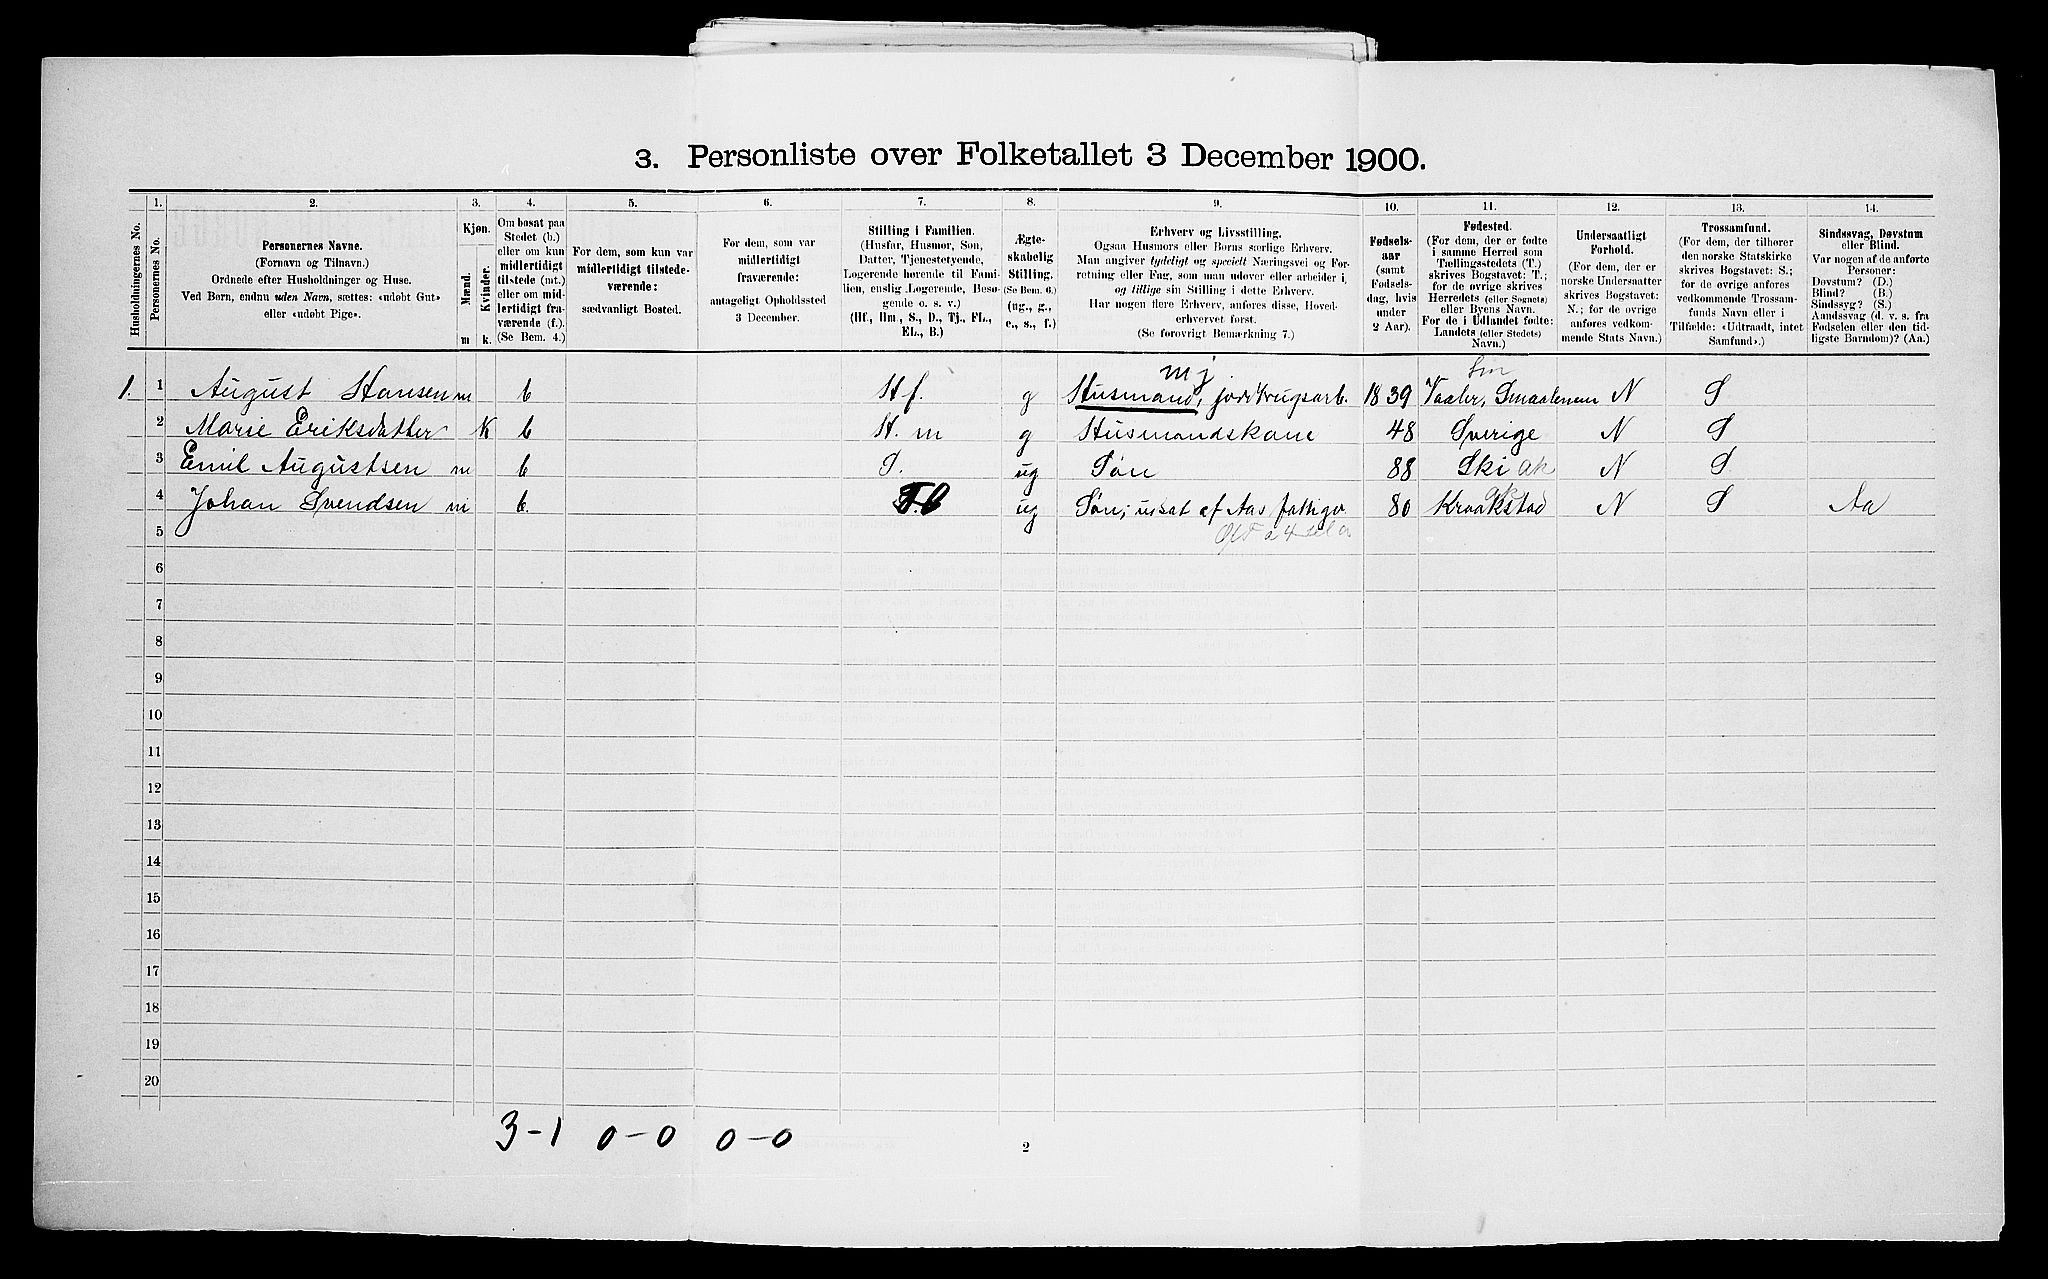 3. Personliste over Folketallet 3 December 1900.
1. 2. 3. 4. 5. 6. 7. 8. 9. 10. 11. 12. 13. 14.
Husholdningernes No.
Personernes No.
Personernes Navne.
(Fornavn og Tilnavn.)
Ordnede efter Husholdninger og Huse.
Ved Børn, endnu uden Navn, sættes: «udøbt Gut»
eller «udøbt Pige».
Kjøn.
Mænd.
Kvinder.
m k.
Om bosat paa
Stedet (b.)
eller om kun
midlertidigt
tilstede (mt.)
eller om mid-
lertidigt fra-
værende (f.).
(Se Bem. 4.)
For dem, som kun var
midlertidigt tilstede-
værende:
sædvanligt Bosted.
For dem, som var
midlertidigt
fraværende:
antageligt Opholdssted
3 December.
Stilling i Familien.
(Husfar, Husmor, Søn,
Datter, Tjenestetyende,
Logerende hørende til Fami-
lien, enslig Logerende, Besø-
gende o. s. v.)
(Hf., Hm., S., D., Tj., FL.,
EL., B.)
Ægte-
skabelig
Stilling.
(Se Bem. 6.)
(ug., g.,
e., s., f.)
Erhverv og Livsstilling.
Ogsaa Husmors eller Børns særlige Erhverv.
Man angiver tydeligt og specielt Næringsvei og For-
retning eller Fag, som man udøver eller arbeider i,
og tillige sin Stilling i dette Erhverv.
Har nogen flere Erhverv, anføres disse, Hoved-
erhvervet først.
(Se forøvrigt Bemærkning 7.)
Fødsels-
aar
(samt
Fødsels-
dag, hvis
under
2 Aar).
Fødested.
(For dem, der er fødte
i samme Herred som
Tællingsstedets (T.)
skrives Bogstavet: T.;
for de øvrige skrives
Herredets (eller Sognets)
eller Byens Navn.
For de i Udlandet fødte:
Landets (eller Stedets)
Navn.)
Undersaatligt
Forhold.
(For dem, der er
norske Undersaatter
skrives Bogstavet:
N.; for de øvrige
anføres vedkom-
mende Stats Navn.)
Trossamfund.
(For dem, der tilhører
den norske Statskirke
skrives Bogstavet: S.;
for de øvrige anføres
vedkommende Trossam-
funds Navn eller i
Tilfælde: «Udtraadt, intet
Samfund».)
Sindssvag, Døvstum
eller Blind.
Var nogen af de anførte
Personer:
Døvstum? (D.)
Blind? (B.)
Sindssyg? (S.)
Aandssvag (d. v. s. fra
Fødselen eller den tid-
ligste Barndom)? (Aa.)
mj Sm
1. 1 August Hansen m b Hf. g Husmand, jordbrugsarb. 1839 Vaaler, Smaalenene N S
2 Marie Eriksdatter K b H.m g Husmandskone 48 Sverige N S
3 Emil Augustsen m b S. ug Søn 88 Ski Ak N S
4 Johan Svendsen m b. ug Søn; utsat af Aas fattigv. 80 Kraakstad N S Aa
5
6
7
8
9
10
11
12
13
14
15
16
17
18
19
20
3-1 0-0 0-0
2